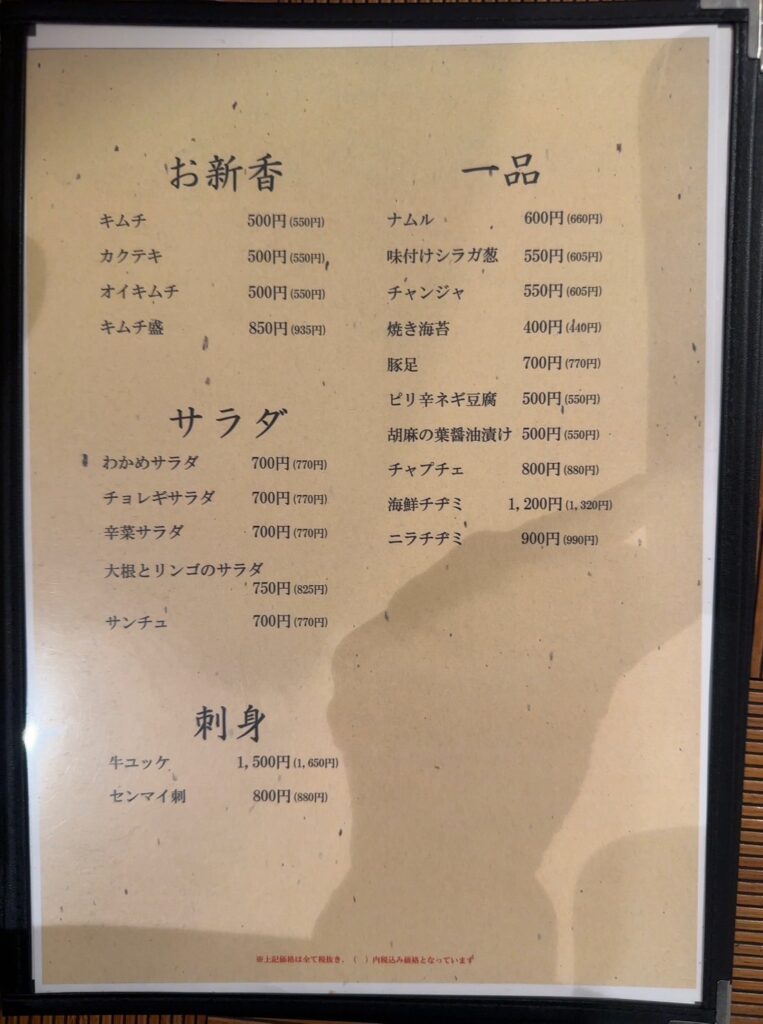 お新香
キムチ 500円(550円)
カクテキ 500円(550円)
オイキムチ 500円(550円)
キムチ盛 850円(935円)
サラダ
わかめサラダ 700円(770円)
チョレギサラダ 700円(770円)
辛菜サラダ 700円(770円)
大根とリンゴのサラダ
750円(825円)
サンチュ 700円(770円)
刺身
牛ユッケ 1,500円(1,650円)
センマイ刺 800円(880円)
一品
ナムル 600円(660円)
味付けシラガ葱 550円(605円)
チャンジャ 550円(605円)
焼き海苔 400円(440円)
豚足 700円(770円)
ピリ辛ネギ豆腐 500円(550円)
胡麻の葉醤油漬け 500円(550円)
チャプチェ 800円(880円)
海鮮チヂミ 1,200円(1,320円)
ニラチヂミ 900円(990円)
※上記価格は全て税抜き、( )内税込み価格となっています